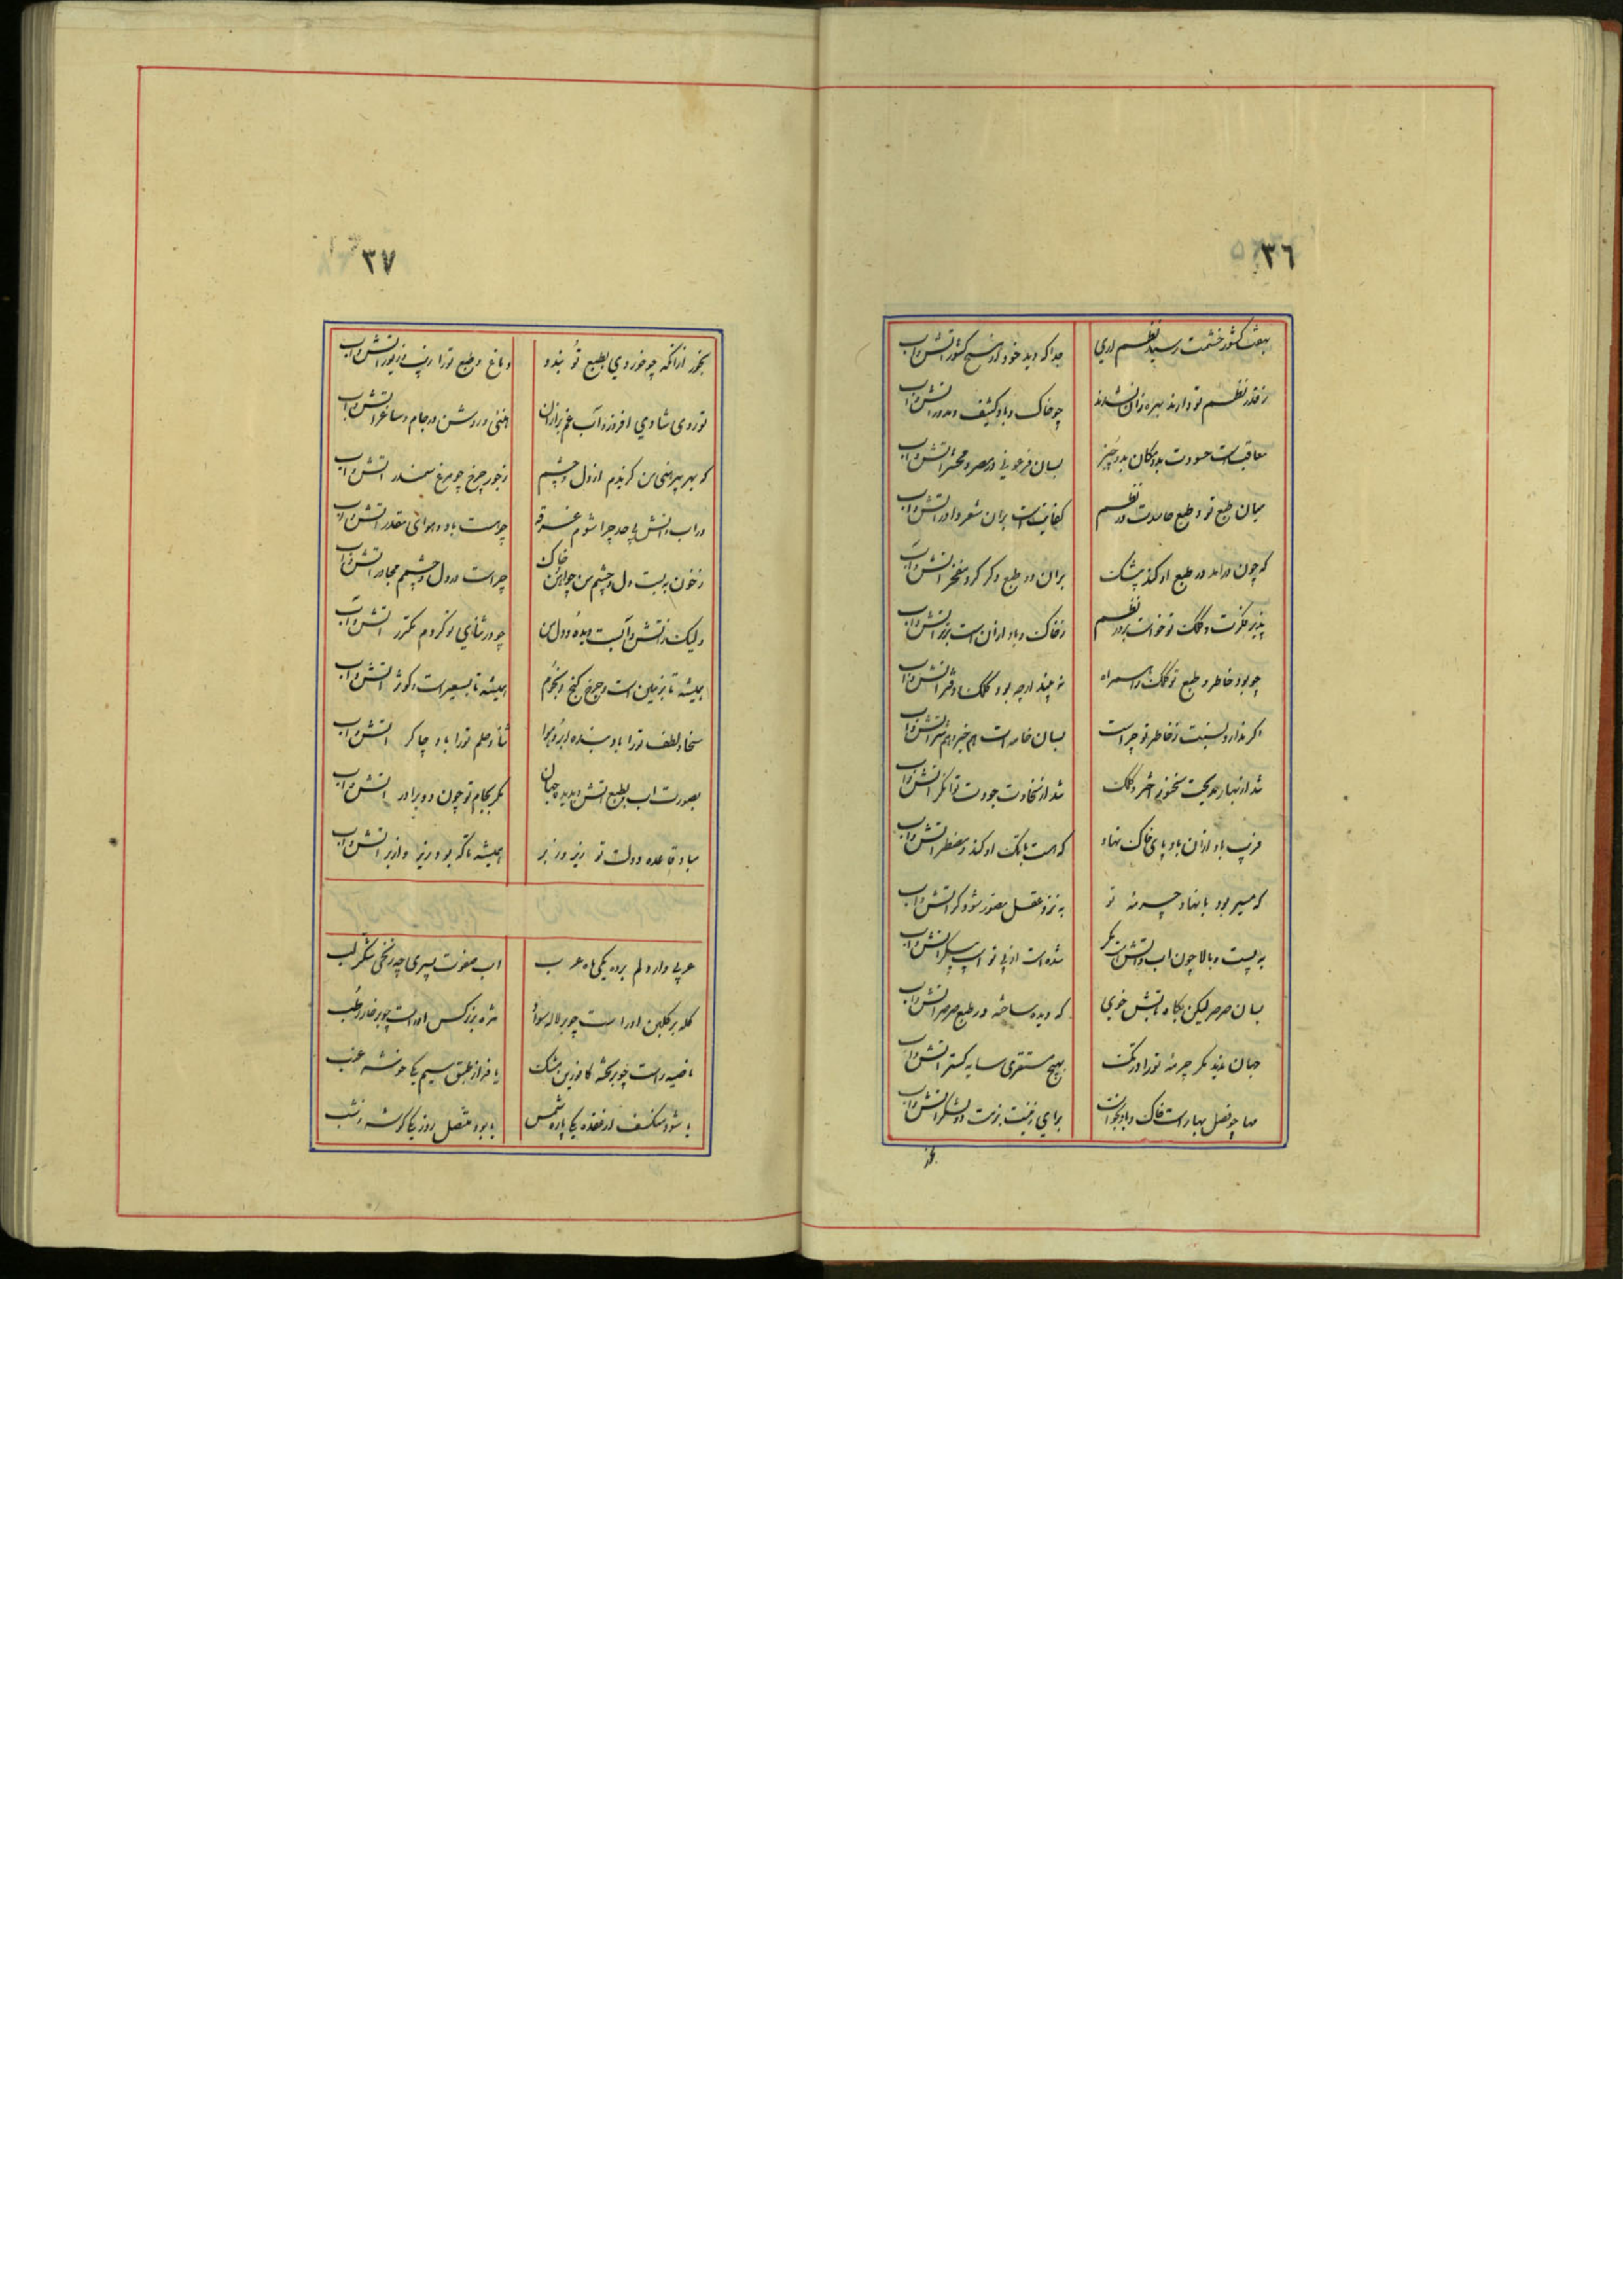 ٣٦
بهفت کشور خشمت رسید نظم اری
جدا که دید خود از هیچ کشور اتش واب
ز قدر نظم تو دارند بهره زان نشدند
چو خاک وباد کثیف ومدور اتش واب
معاقب است حسودت بدو مکان بدو چیز
بسان فرعونی در مصر ومحشر اتش واب
میان طبع تو و طبع حاسدت در نظم
کفایت است بران شعر داور اتش واب
که چون دراید در طبع او کند پیشک
بران دو طبع دکر کرد مفخر اتش واب
پذیر فکرت وکلک تو خواست در نظم
ز خاک وباد ازان است برتر اتش واب
چو بود خاطر و طبع تو کلک را همراه
نه چند ارچه بود کلک
اکر ندارد نسبت ز خاطر تو چراست
بسان خامه است هم خیر وهم شر اتش واب
شد از
شد از سخاوت جودت توانکر اتش واب
فریب باد ازان باد پای خاک نهاد
که هست بانک او کند و مضطر اتش واب
که میر بود با نهاد چرمه تو
به نزد عقل مصور شود کر اتش واب
به پست وبالا چون اب واتش است مکر
شده است از پی تو اسپ پیکر اتش واب
بسان صرصر لیکن بکاه تبش خوی
که دیده ساخته در طبع صرصر اتش واب
جهان ندید مکر چرمه تو را در تک
بهیچ مستقری سایه کستر اتش واب
مها چو فصل بهار است خاک وباد بجو است
برای زینت بزمت دو لشکر اتش واب
بخور
٣٧
بخور ازانکه چو خوردی بطبع تو بندد
دماغ وطبع تورا زیب وزیور اتش واب
تو روی شادی افروز وآب غم بر از ان
هنی وروشن در جام وساغر اتش واب
که بهر پیرهنی من کزیدم از دل وچشم
ز جور چرخ چو مرغ سمندر اتش واب
در اب واتش بی حد چرا شوم غرقه
چو هست باد و هوای مقدر اتش واب
ز خون به بست دل وچشم من چو این خاک
چراست در دل وچشمم مجاور اتش واب
ولیک ز اتش وآبست دیده ودل من
چو در ثنای تو کردم مکرر اتش واب
همیشه تا بزمین است وچرخ کنج ونجوم
همیشه تا بسعیر است وکوثر اتش واب
سخا ولطف تورا باد بنده ابر وهوا
ثنا وحلم تورا باد چاکر اتش واب
بصورت اب بطبع اتش و بدید جهان
مکر بجام تو چون دو برادر اتش واب
مباد قاعده دولت تو زیر وزبر
همیشه تا که بود زیر وازبر اتش واب
عربی وار دلم برد یکی ماه عرب
اب صفوت پسری چه زنخی شکر لب
کله بر کلبن اورا است چو بر لاله سواد
مژه بر نرکس اوراست چو بر خار رطب
ناصیه راست چو بر تخته کافور ین مشک
یا فراز طبق سیم یکی خوشه عنب
یا شود منکسف از عقده یکی پاره شمس
یا بود متصل روز یکی کوشه ز شب